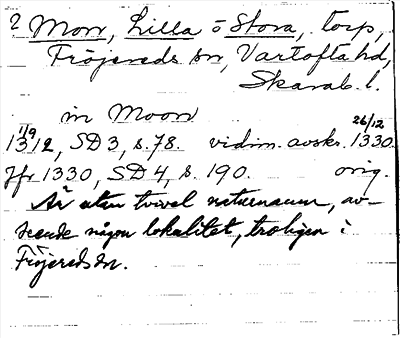 ? Morr, Lilla o Stora, torp,
Fröjereds sn, Vartofta hd,
Skarab. l.
in Moorr 26/12
1/9 1312, SD 3, s. 78. vidim. avskr. 1330.
Jfr 1330, SD 4, s. 190. orig.
Är utan tvivel naturnamn, av-
seende någon lokalitet, troligen i
Fröjereds sn.